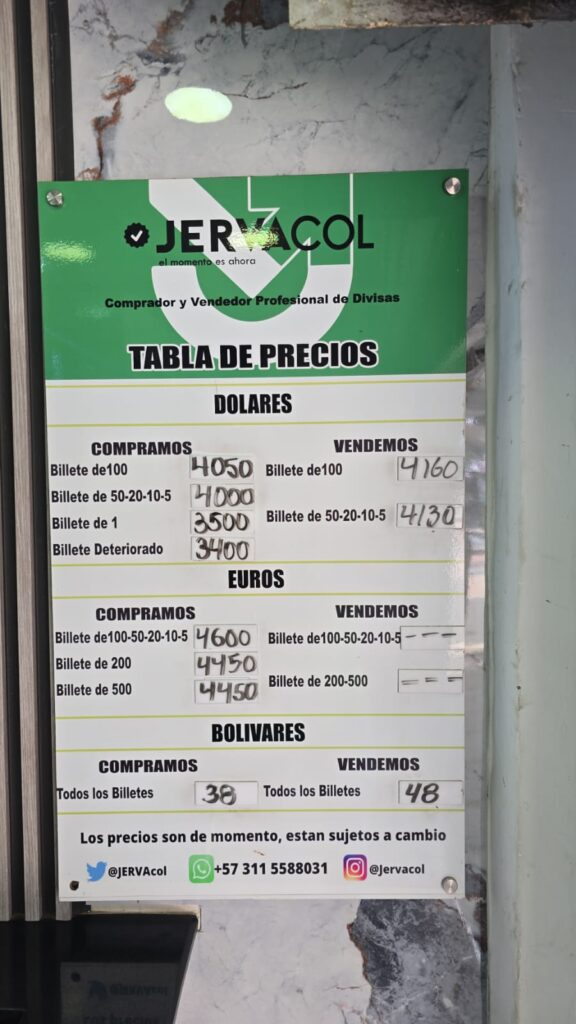 JERVACOL
el momento es ahora
Comprador y Vendedor Profesional de Divisas
TABLA DE PRECIOS
DOLARES
COMPRAMOS VENDEMOS
Billete de100 4050 Billete de100 4160
Billete de 50-20-10-5 4000 Billete de 50-20-10-5 4130
Billete de 1 3500
Billete Deteriorado 3400
EUROS
COMPRAMOS VENDEMOS
Billete de100-50-20-10-5 4600 Billete de100-50-20-10-5 ---
Billete de 200 4450 Billete de 200-500 ---
Billete de 500 4450
BOLIVARES
COMPRAMOS VENDEMOS
Todos los Billetes 38 Todos los Billetes 48
Los precios son de momento, estan sujetos a cambio
@JERVAcol +57 311 5588031 @Jervacol